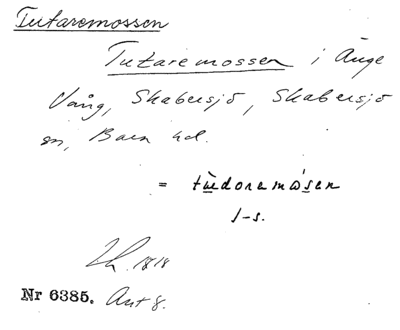 Tutaremossen
Tutaremossen i Änge
Vång, Skabersjö, Skabersjö
sn, Bara hd.
= tùdoremòsen
1-s.
1818
Nr 6385. Ant 8.